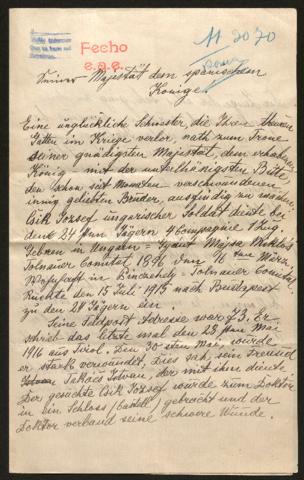 Fecho
e.g.e.
11 2070
Seiner Majestät dem spanischen
Könige.
Eine unglückliche Schwester, die Ihren theuren
Gatten im Kriege verlor, naht zum Trone
Seiner gnädigsten Majestät, dem erhabenen
König mit der unterthänigsten Bitte
den schon seit Monaten verschwundenen
innig geliebten Brüder, ausfündig zu machen
Csik József ungarischer Soldat diente bei
den 24ten Jägern 4 Compagnie 1 Zug.
Geboren in Ungarn = Majsa Miklósvár
Tolnauer Comitat 1896 den 16ten März
Wohnhaft in Pinczehely - Tolnauer Comitat
Rückte den 15 Juli 1915 nach Budapest
zu den 24 Jägern ein
Seine Feldpost Adresse war 73. Er
schrieb das letzte mal den 28ten Mai
1916 aus Tirol. Den 30sten Mai, wurde
er stark verwundet, dies sah sein Freund
Takács István, der mit ihm diente
Der gesuchte Csik József wurde zum Doktor
in ein Schloss /Castell/ gebracht und der
Doktor verband seine schwere Wunde.